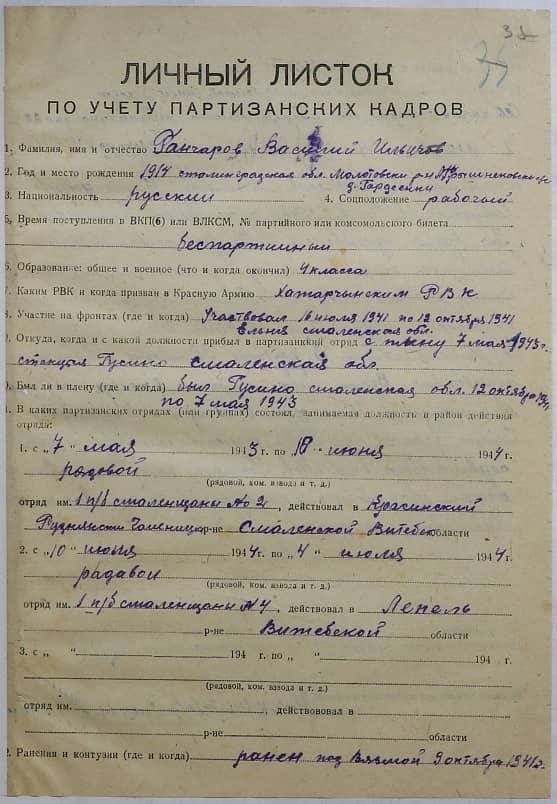 38
ЛИЧНЫЙ ЛИСТОК
ПО УЧЕТУ ПАРТИЗАНСКИХ КАДРОВ
1. Фамилия, имя и отчество Ганчаров Василий Ильичов
2. Год и место рождения 1914 сталинградская обл. Молотовски р-н
д.
3. Национальность русский 4. Соцположение рабочий
5. Время поступления в ВКП(б) или ВЛКСМ, № партийного или комсомольского билета
беспартииный
6. Образование: общее и военное (что и когда окончил) 4 класса
7. Каким РВК и когда призван в Красную Армию Хатарчынским РВК
8. Участие на фронтах (где и когда) Участвовал 16 июля 1941 по 12 октября 1941
Ельня смаленская обл.
9. Откуда, когда и с какой должности прибыл в партизанский отряд с плену 7 мая 1943г.
станцыя Гусино смаленская обл
0. Был ли в плену (где и когда) был Гусино смаленская обл. 12 октября 1941
по 7 мая 1943
1. В каких партизанских отрядах (или группах) состоял, занимаемая должность и район действия
отряда:
1. с „7“ мая 1943 г. по „10“ июня 1944 г.
радовой
(рядовой, ком. взвода и т. д.)
отряд им. 1 п/б смаленщаны № 2, действовал в Красинский
р-не Смаленской Витебск области
2. с „10“ июня 1944 г. по „4“ июля 1944 г.
радавои
(рядовой, ком. взвода и т. д.)
отряд им. 1 п/б смаленщаны № 4, действовал в Лепель
р-не Витебской области
3. с „ “ 194 г. по „ “ 194 г.
(рядовой, ком. взвода и т. д.)
отряд им. , действововал в
р-не области
2. Ранения и контузии (где и когда) ранен под Вязмой 9 октября 1941г.